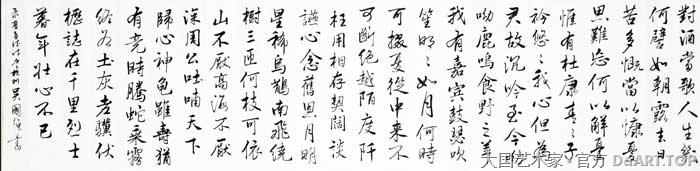 對酒當歌人生幾
何譬如朝露去日
苦多慨當以慷憂
思難忘何以解憂
惟有杜康青青子
衿悠悠我心但為
君故沉吟至今呦
呦鹿鳴食野之蘋
我有嘉賓鼓瑟吹
笙明明如月何時
可掇憂從中來不
可斷絕越陌度阡
枉用相存契闊談
讌心念舊恩月明
星稀烏鵲南飛繞
樹三匝何枝可依
山不厭高海不厭
深周公吐哺天下
歸心神龜雖壽猶
有竟時騰蛇乘霧
終為土灰老驥伏
櫪誌在千里烈士
暮年壯心不已
吳國 書
大国艺术家 · 官方 DaART.TOP